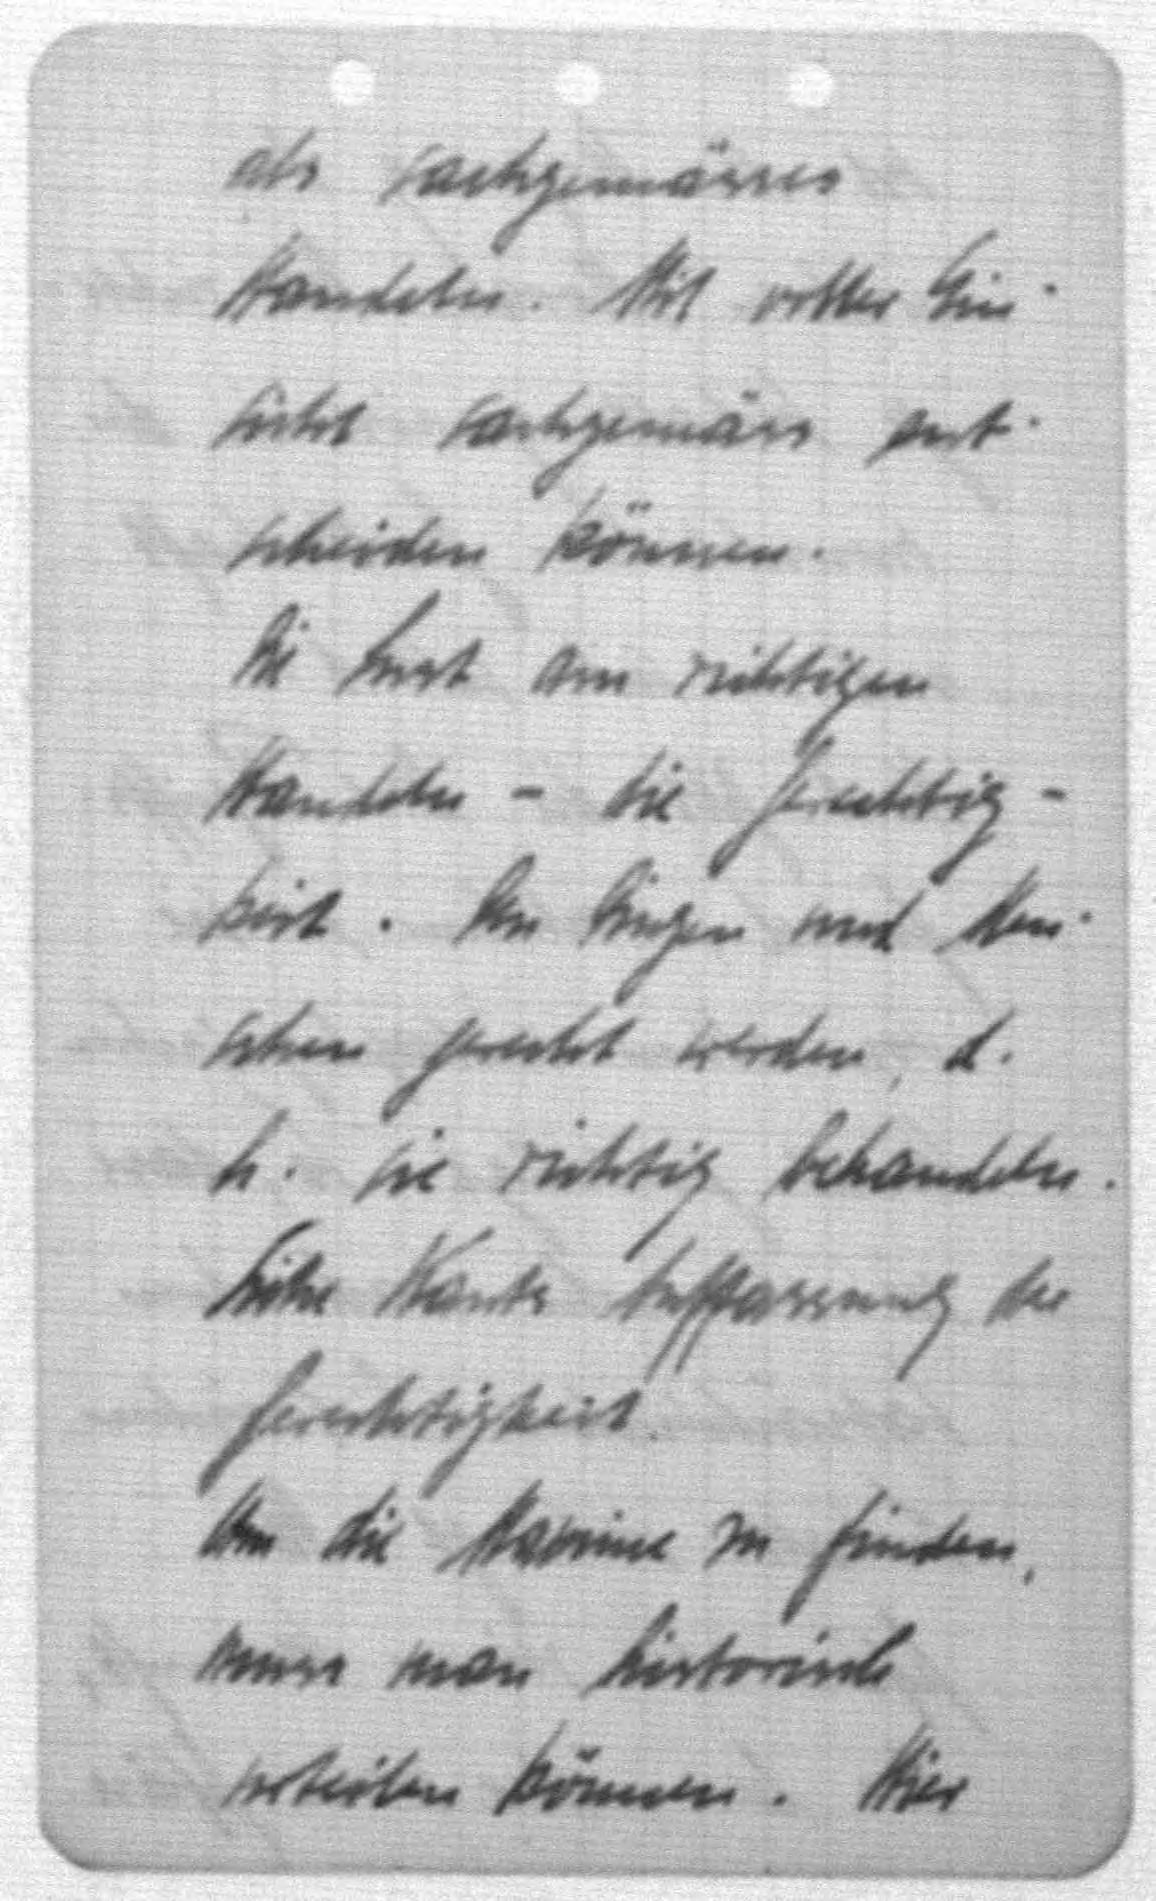 als sachgemässes
Handeln. Mit voller Ein-
sicht sachgemäss ent-
scheiden können.
Die Lust am richtigen
Handeln - die Gerechtig-
keit. Den Dingen und Men-
schen gerecht werden, d.
h. sie richtig behandeln.
Siehe Kants Auffassung der
Gerechtigkeit.
Um die Maxime zu finden,
muss man historisch
urteilen können. Hier